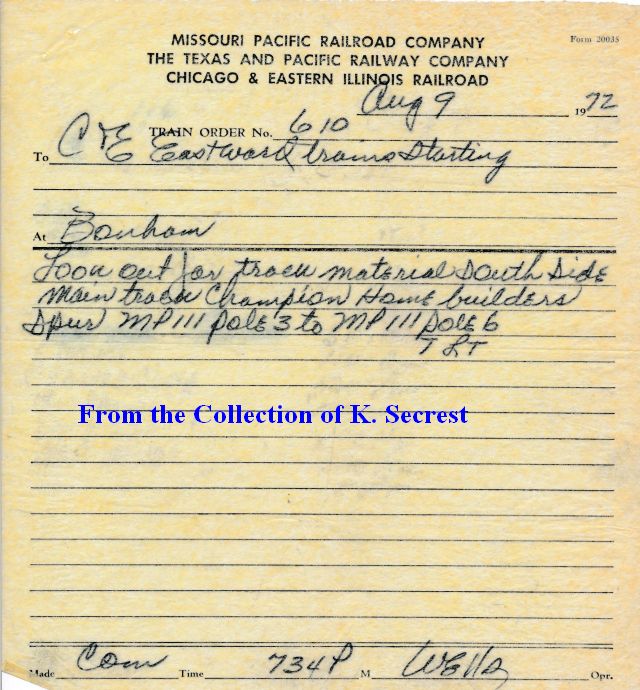 Form 20035
MISSOURI PACIFIC RAILROAD COMPANY
THE TEXAS AND PACIFIC RAILWAY COMPANY
CHICAGO & EASTERN ILLINOIS RAILROAD
Aug 9 1972
TRAIN ORDER No. 610
To C&E Eastward trains Starting
At Bonham
Look out for track material South Side
Main track Champion Home builders
Spur MP 111 pole 3 to MP 111 pole 6
From the Collection of K. Secrest
Made Com Time 734 P M Wells Opr.